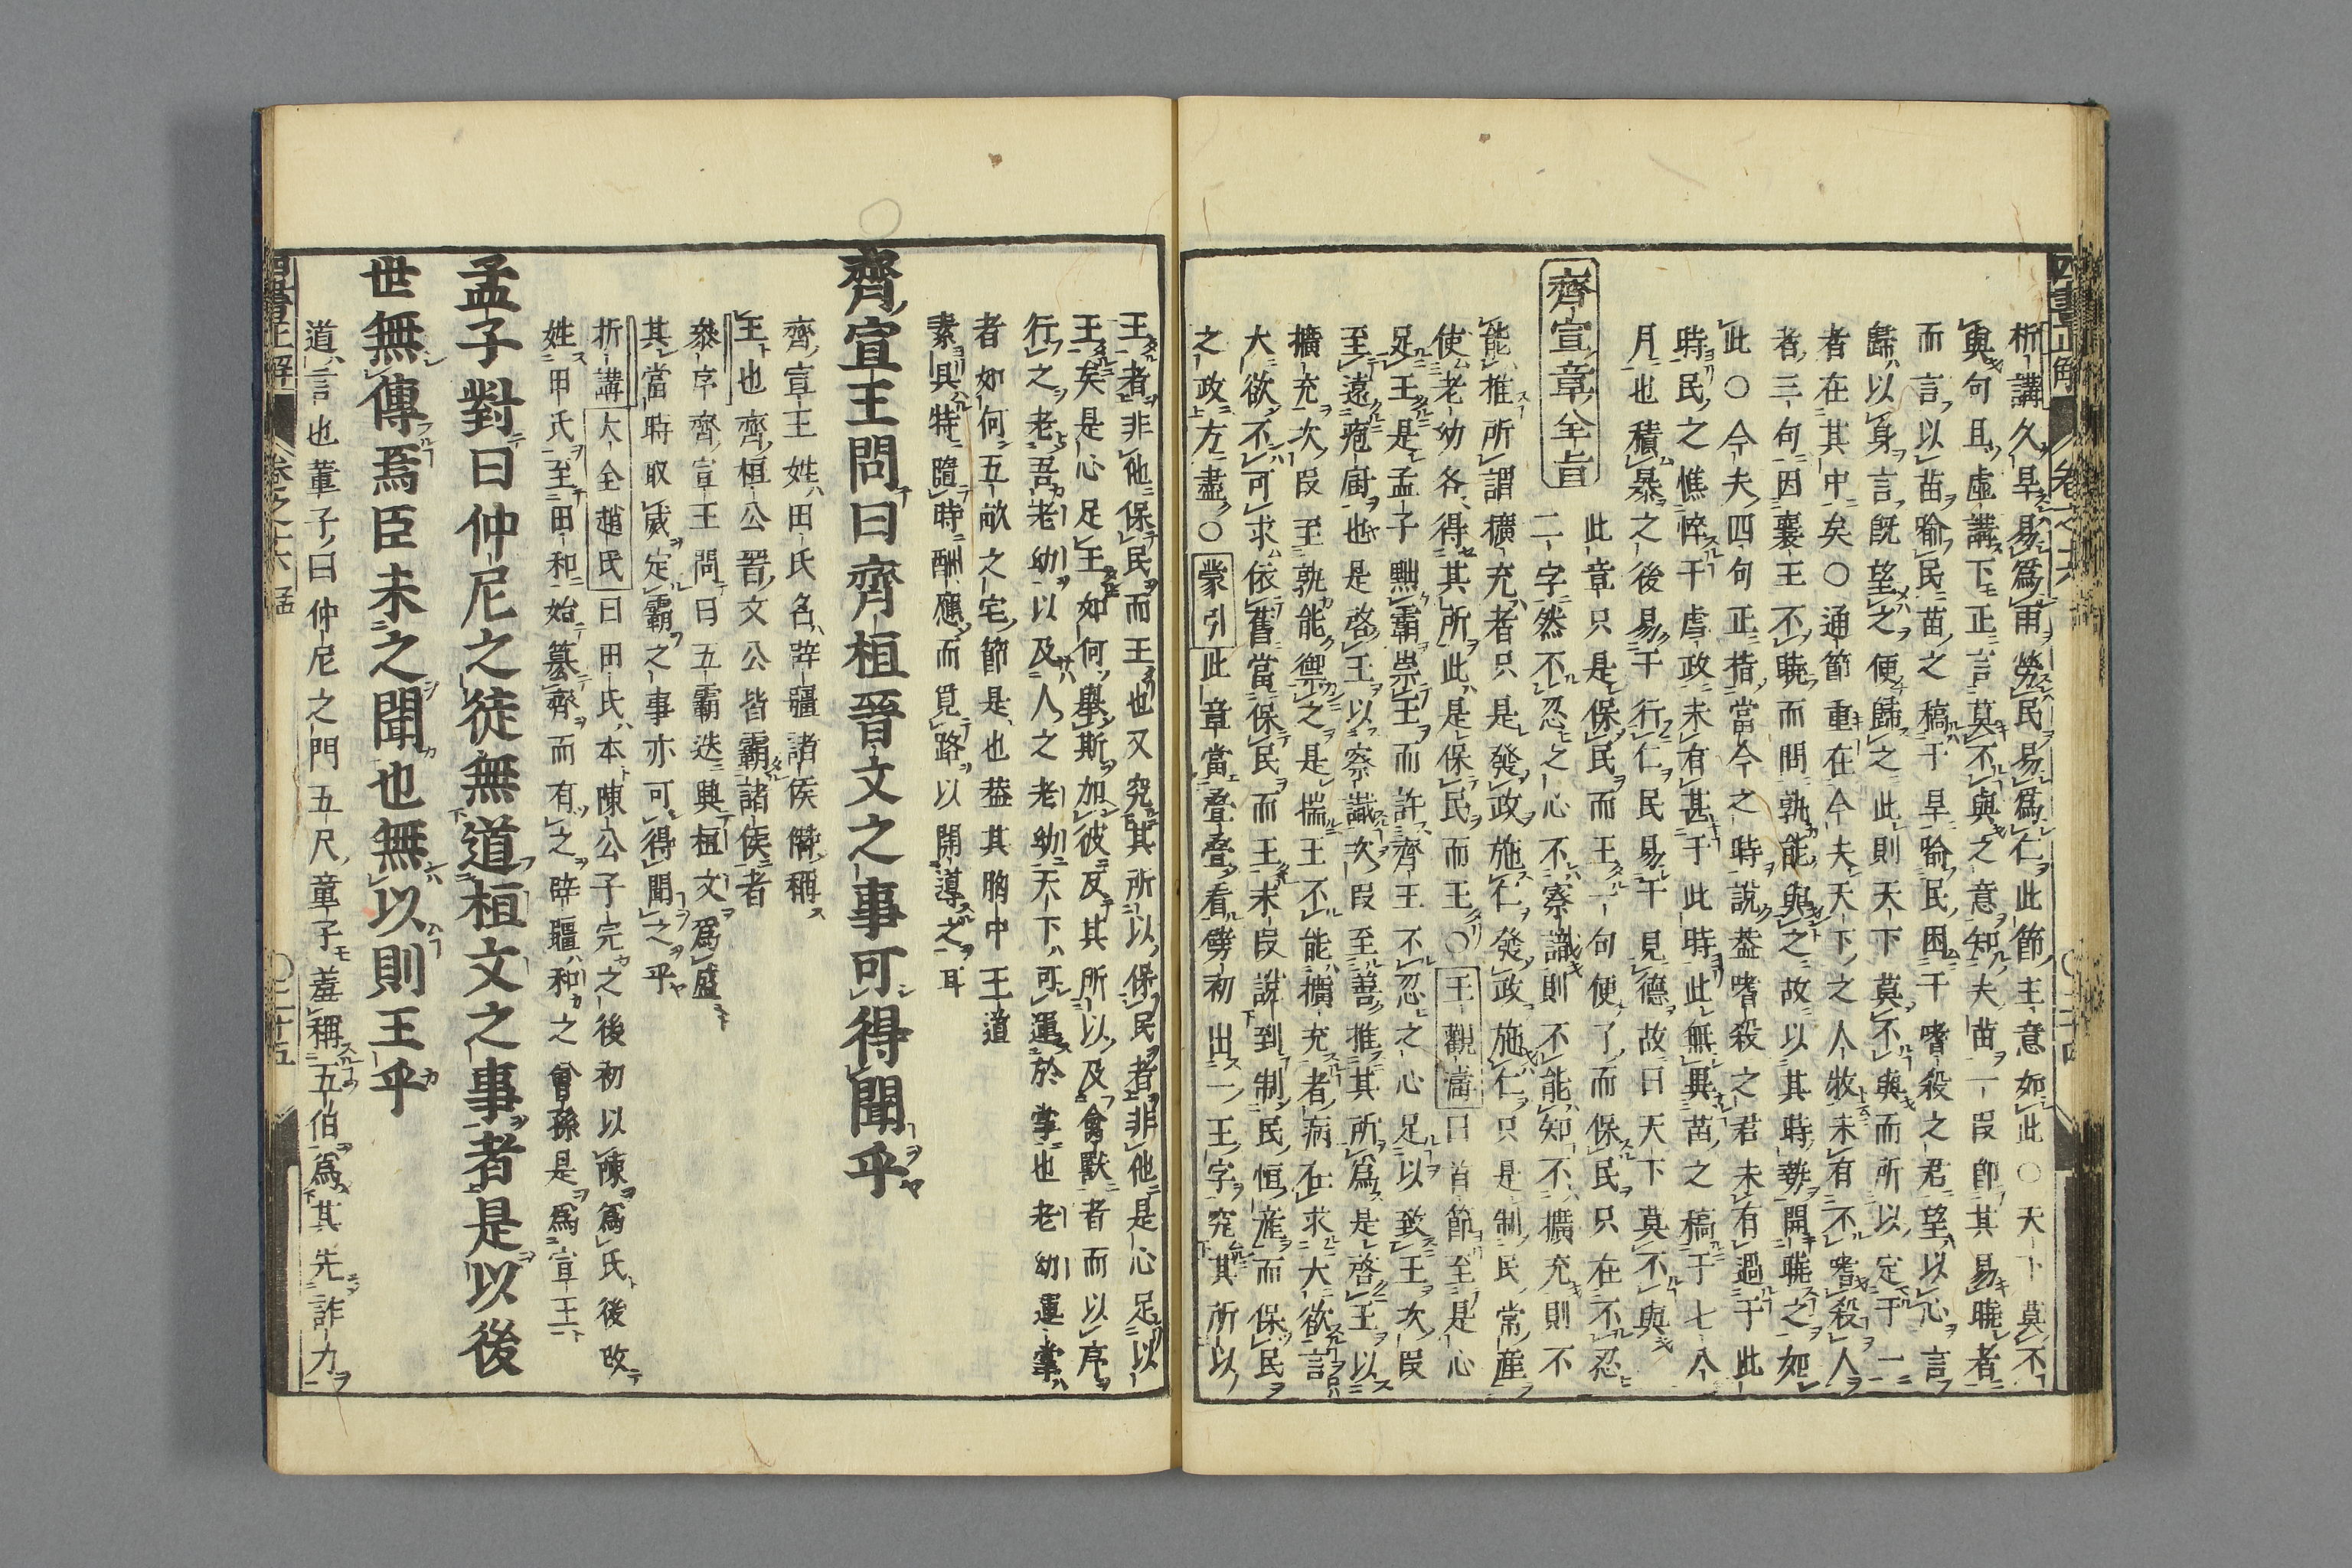 析講久旱易為雨勞民易為仁此節主意如此○天下莫不
與句且虛講下正言莫不與之意知夫苗一段卽其易曉者
而言以苗喻民苗之稿于旱喻民困于嗜殺之君望以心言
歸以身言旣望之便歸之此則天下莫不與而所以定于一
者在其中矣○通節重在今夫天下之人牧未有不嗜殺人
者三句因襄王不曉而問孰能與之故以其時勢開曉之如
此○今夫四句正指當今之時說葢嗜殺之君未有過于此
時民之憔悴于虐政未有甚于此時此無異苗之稿于七八
月也積暴之後易于行仁民易于見德故曰天下莫不與
齊宣章全旨
此章只是保民而王一句便了而保民只在不忍
二字然不忍之心不察識則不能知不擴充則不
能推所謂擴充者只是發政施仁發政施仁只是制民常產
使老幼各得其所此是保民而王○王觀濤曰首節至是心
足王是孟子黜霸崇王而許齊王不忍之心足以致王次段
至遠庖廚也是啓王以察識次段至善推其所為是啓王以
擴充次段至孰能禦之是揣王不能擴充者病在求大欲言
大欲不可求依舊當保民而王末段說到制民恒產而保民
之政方盡○蒙引此章當疊疊看劈初出一王字究其所以
王者非他保民而王也又究其所以保民者非他是心足以
王矣是心足王如何舉斯加彼及其所以及禽獸者而以序
行之老吾老幼以及人之老幼天下可運於掌也老幼運掌
者如何五畝之宅節是也葢其胸中王道
素具特隨時酬應而覓路以開導之耳
齊宣王問曰齊桓晉文之事可得聞乎
齊宣王姓田氏名辟疆諸侯僭稱
王也齊桓公晋文公皆霸諸侯者
參序齊宣王問曰五霸迭興桓文為盛
其當時取威定霸之事亦可得聞之乎
析講大全趙氏曰田氏本陳公子完之後初以陳為氏後改
姓田氏至田和始簒齊而有之辟疆和之曾孫是為宣王
孟子對曰仲尼之徒無道桓文之事者是以後
世無傳焉臣未之聞也無以則王乎
道言也董子曰仲尼之門五尺童子羞稱五伯為其先詐力